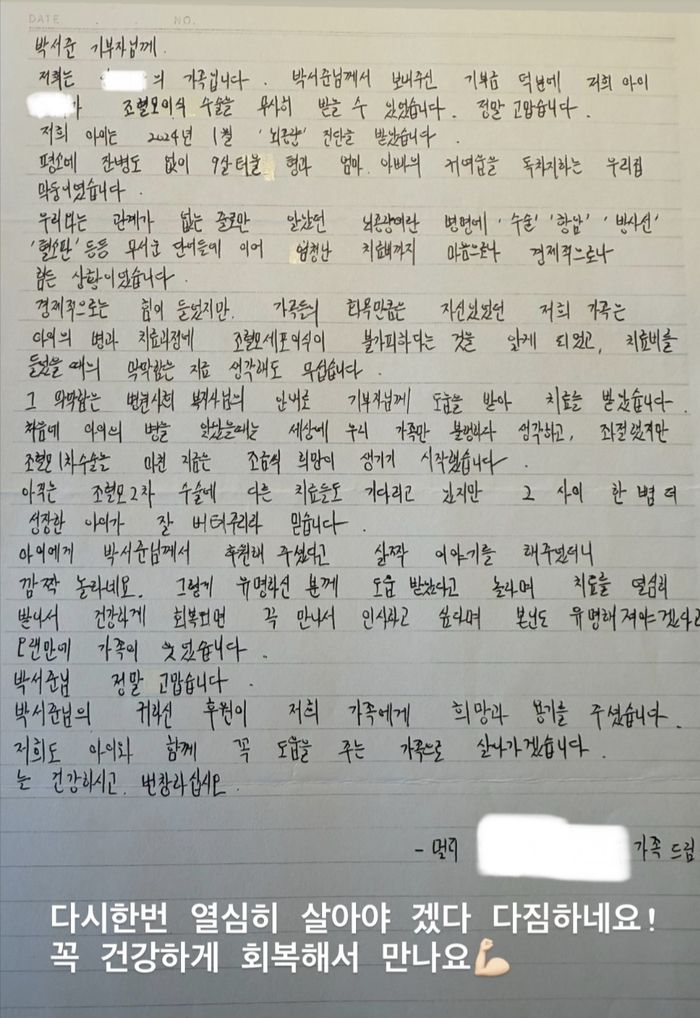 DATE . . . NO.
박서준 기부자님께.
저희는 의 가족입니다. 박서준님께서 보내주신 기부금 덕분에 저희 아이
가 조혈모이식 수술을 무사히 받을 수 있었습니다. 정말 고맙습니다.
저희 아이는 2024년 1월 '뇌종양' 진단을 받았습니다.
평소에 잔병도 없이 9살 터울 형과 엄마 아빠의 귀여움을 독차지하는 우리집
막둥이였습니다.
우리와는 관계가 없는 줄로만 알았던 뇌종양이란 병명에 '수술' '항암' '방사선'
'혈소판' 등등 무서운 단어들에 이어 엄청난 치료비까지 마음으로나 경제적으로나
힘든 상황이었습니다.
경제적으로는 힘이 들었지만. 가족들의 화목만큼은 자신있었던 저희 가족은
아이의 병과 치료과정에 조혈모세포이식이 불가피하다는 것을 알게 되었고, 치료비를
들었을 때의 막막함은 지금 생각해도 무섭습니다.
그 막막함은 병원사회 복지사님의 안내로 기부자님께 도움을 받아 치료를 받았습니다.
처음에 아이의 병을 알았을때는 세상에 우리 가족만 불행하다 생각하고, 좌절했지만
조혈모1차수술을 마친 지금은 조금씩 희망이 생기기 시작했습니다.
아직은 조혈모2차 수술에 다른 치료들도 기다리고 있지만 그 사이 한 뼘 더
성장한 아이가 잘 버텨주리라 믿습니다.
아이에게 박서준님께서 후원해 주셨다고 살짝 이야기를 해주었더니
깜짝 놀라네요. 그렇게 유명하신 분께 도움 받았다고 놀라며 치료를 열심히
받아서 건강하게 회복되면 꼭 만나서 인사하고 싶다며 본인도 유명해져야겠다고
오랜만에 가족이 웃었습니다.
박서준님 정말 고맙습니다.
박서준님의 귀하신 후원이 저희 가족에게 희망과 용기를 주셨습니다.
저희도 아이와 함께 꼭 도움을 주는 가족으로 살아가겠습니다.
늘 건강하시고. 번창하십시오.
- 멀리 가족 드림
다시한번 열심히 살아야 겠다 다짐하네요!
꼭 건강하게 회복해서 만나요💪🏻